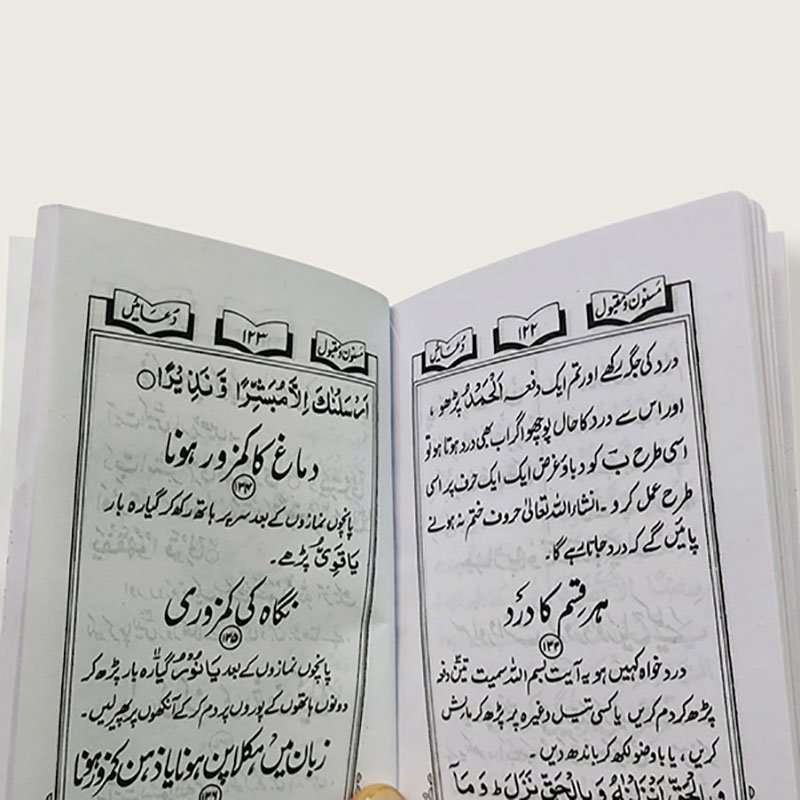 مسنون و مقبول ۱۲۲ دعائیں
درد کی جگہ رکھے اور تم ایک دفعہ اَلْحَمْدُ پڑھو ،
اور اس سے درد کا حال پوچھو اگر اب بھی درد ہوتا ہو تو
اسی طرح بَ کو دباؤ غرض ایک ایک حرف پر اسی
طرح عمل کرو ۔ انشاء اللہ تعالیٰ حروف ختم نہ ہونے
پائیں گے کہ درد جاتا رہے گا ۔
ہر قسم کا درد
۱۳۳
درد خواہ کہیں ہو یہ آیت بسم اللہ سمیت تین دفعہ
پڑھ کر دم کریں یا کسی تیل وغیرہ پر پڑھ کر مالش
کریں ، یا با وضو لکھ کر باندھ دیں ۔
وَبِالْحَقِّ اَنْزَلْنٰهُ وَبِالْحَقِّ نَزَلَ ط وَمَآ
مسنون و مقبول ۱۲۳ دعائیں
اَرْسَلْنٰكَ اِلَّا مُبَشِّرًا وَّنَذِيْرًا ○
دماغ کا کمزور ہونا
۱۳۴
پانچوں نمازوں کے بعد سر پر ہاتھ رکھ کر گیارہ بار
یَا قَوِیُّ پڑھے ۔
نگاہ کی کمزوری
۱۳۵
پانچوں نمازوں کے بعد یَا نُوْرُ گیارہ بار پڑھ کر
دونوں ہاتھوں کے پوروں پر دم کر کے آنکھوں پر پھیر لیں ۔
زبان میں ہکلا پن ہونا یا ذہن کمزور ہونا
۱۳۶